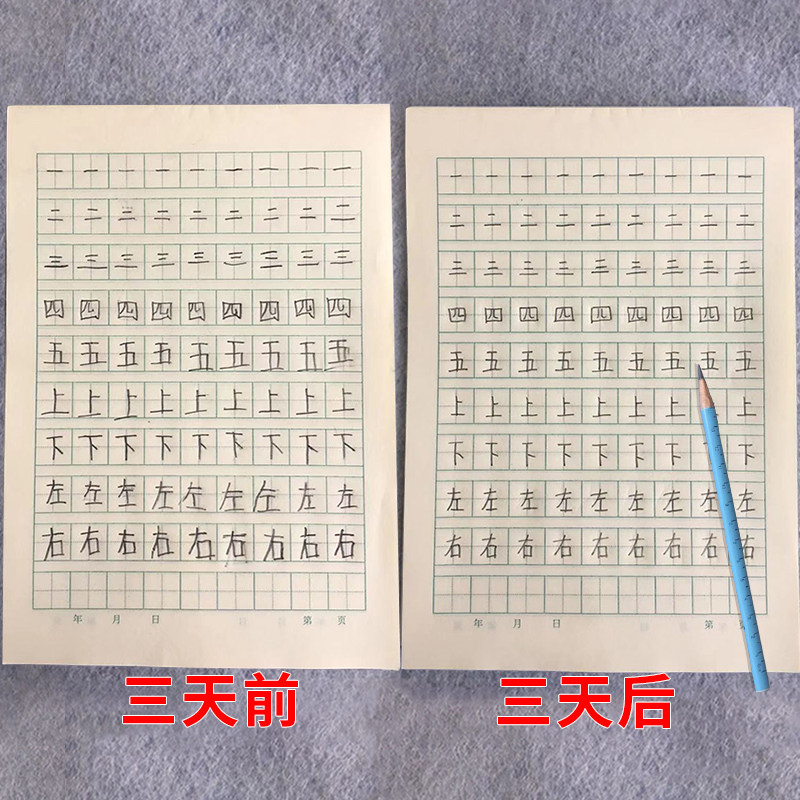 一一一一一一一一一
二二二二二二二二二
三三三三三三三三三
四四四四四四四四四
五五五五五五五五五
上上上上上上上上上
下下下下下下下下下
左左左左左左左左左
右右右右右右右右右
年 月 日 第 页
三天前
一一一一一一一一一
二二二二二二二二二
三三三三三三三三三
四四四四四四四四四
五五五五五五五五五
上上上上上上上上
下下下下下下下下下
左左左左左左左左左
右右右右右右右右右
年 月 日 第 页
三天后